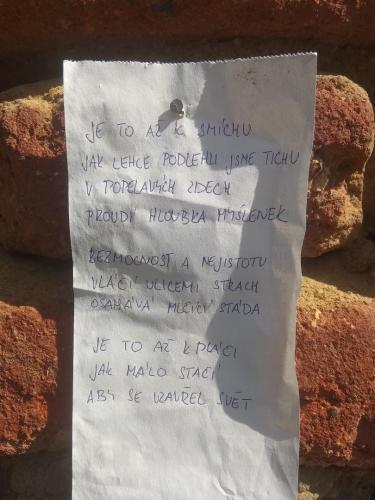 JE TO AŽ K SMÍCHU
JAK LEHCE PODLEHLI JSME TICHU
V POPELAVÝCH ZDECH
PROUDÍ HLOUBKA MYŠLENEK
BEZMOCNOST A NEJISTOTU
VLÁČÍ ULICEMI STRACH
OSAHÁVÁ MLČÍCÍ STÁDA
JE TO AŽ K PLÁČI
JAK MÁLO STAČÍ
ABY SE UZAVŘEL SVĚT